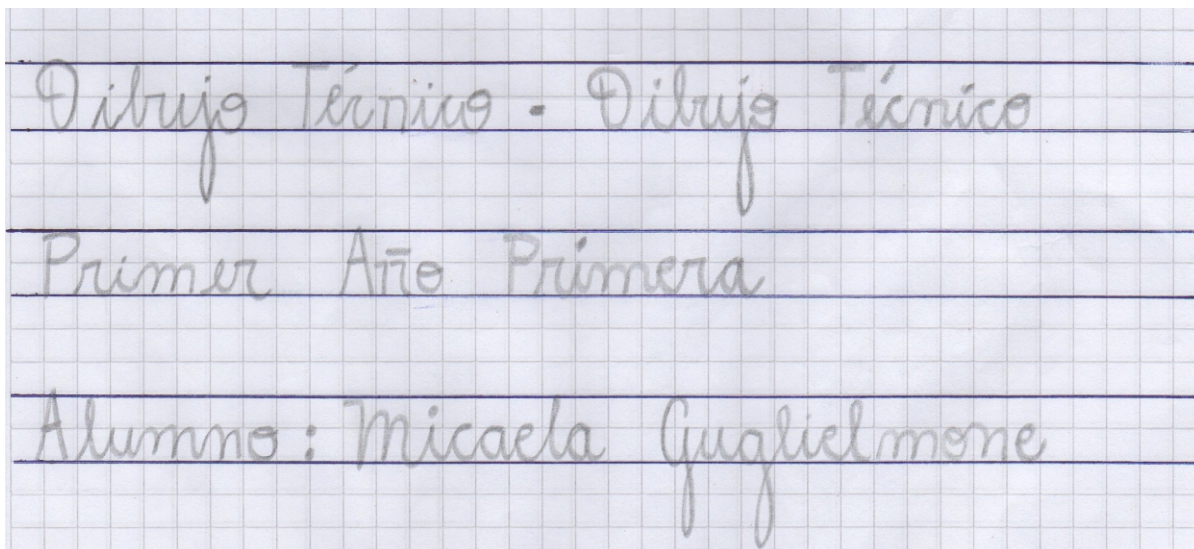 Dibujo Técnico. Dibujo Técnico
Primer Año Primera
Alumno: Micaela Guglielmone